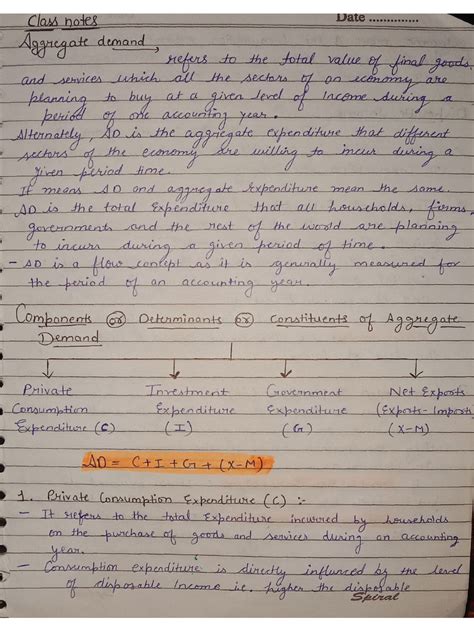 Class notes
Date ..............
Aggregate demand,
refers to the total value of final goods
and services which all the sectors of an economy are
planning to buy at a given level of Income during a
period of one accounting year.
Alternately, AD is the aggregate expenditure that different
sectors of the economy are willing to incur during a
given period time.
It means AD and aggregate expenditure mean the same.
AD is the total Expenditure that all households, firms,
governments and the rest of the world are planning
to incurs during a given period of time.
- AD is a flow concept as it is generally measured for
the period of an accounting year.
Components or Determinants or Constituents of Aggregate
Demand
Private Investment Government Net Exports
Consumption Expenditure Expenditure (Exports-Imports)
Expenditure (C) (I) (G) (X-M)
AD = C+I+G+(X-M)
1. Private Consumption Expenditure (C) :-
- It refers to the total Expenditure incurred by households
on the purchase of goods and services during an accounting
year.
- Consumption expenditure is directly influenced by the level
of disposable Income i.e. higher the disposable
Spiral